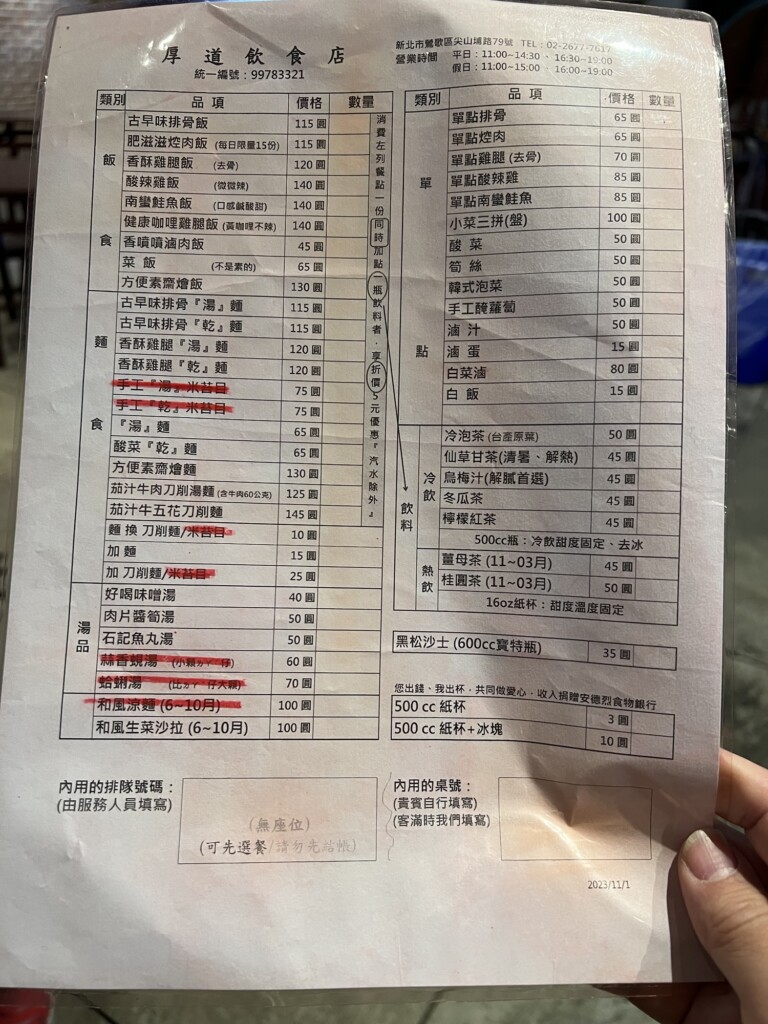 厚道飲食店
統一編號：99783321
新北市鶯歌區尖山埔路79號 TEL：02-2677-7617
營業時間 平日：11:00~14:30 、16:30~19:00
假日：11:00~15:00 、16:00~19:00
類別 品項 價格 數量
飯食
古早味排骨飯 115 圓
肥滋滋焢肉飯 (每日限量15份) 115 圓
香酥雞腿飯 (去骨) 120 圓
酸辣雞飯 (微微辣) 140 圓
南蠻鮭魚飯 (口感鹹酸甜) 140 圓
健康咖哩雞腿飯 (黃咖哩不辣) 140 圓
香噴噴滷肉飯 45 圓
菜飯 (不是素的) 65 圓
方便素齋燴飯 130 圓
麵食
古早味排骨『湯』麵 115 圓
古早味排骨『乾』麵 115 圓
香酥雞腿『湯』麵 120 圓
香酥雞腿『乾』麵 120 圓
手工『湯』米苔目 75 圓
手工『乾』米苔目 75 圓
『湯』麵 65 圓
酸菜『乾』麵 65 圓
方便素齋燴麵 130 圓
茄汁牛肉刀削湯麵 (含牛肉60公克) 125 圓
茄汁牛五花刀削麵 145 圓
麵 換 刀削麵/米苔目 10 圓
加 麵 15 圓
加 刀削麵/米苔目 25 圓
湯品
好喝味噌湯 40 圓
肉片醬筍湯 50 圓
石記魚丸湯 50 圓
蒜香蜆湯 (小顆ㄌㄚˊ仔) 60 圓
蛤蜊湯 (比ㄌㄚˊ仔大顆) 70 圓
和風涼麵 (6~10月) 100 圓
和風生菜沙拉 (6~10月) 100 圓
消費左列餐點一份同時加點一瓶飲料者，享折價5元優惠『汽水除外』
類別 品項 價格 數量
單點
單點排骨 65 圓
單點焢肉 65 圓
單點雞腿 (去骨) 70 圓
單點酸辣雞 85 圓
單點南蠻鮭魚 85 圓
小菜三拼(盤) 100 圓
酸菜 50 圓
筍絲 50 圓
韓式泡菜 50 圓
手工醃蘿蔔 50 圓
滷汁 50 圓
滷蛋 15 圓
白菜滷 80 圓
白飯 15 圓
飲料
冷飲
冷泡茶 (台產原葉) 50 圓
仙草甘茶(清暑、解熱) 45 圓
烏梅汁(解膩首選) 45 圓
冬瓜茶 45 圓
檸檬紅茶 45 圓
500cc瓶：冷飲甜度固定、去冰
熱飲
薑母茶 (11~03月) 45 圓
桂圓茶 (11~03月) 50 圓
16oz紙杯：甜度溫度固定
黑松沙士 (600cc寶特瓶) 35 圓
您出錢、我出杯，共同做愛心，收入捐贈安德烈食物銀行
500 cc 紙杯 3 圓
500 cc 紙杯+冰塊 10 圓
內用的排隊號碼：
(由服務人員填寫)
(無座位)
(可先選餐/請勿先結帳)
內用的桌號：
(貴賓自行填寫)
(客滿時我們填寫)
2023/11/1